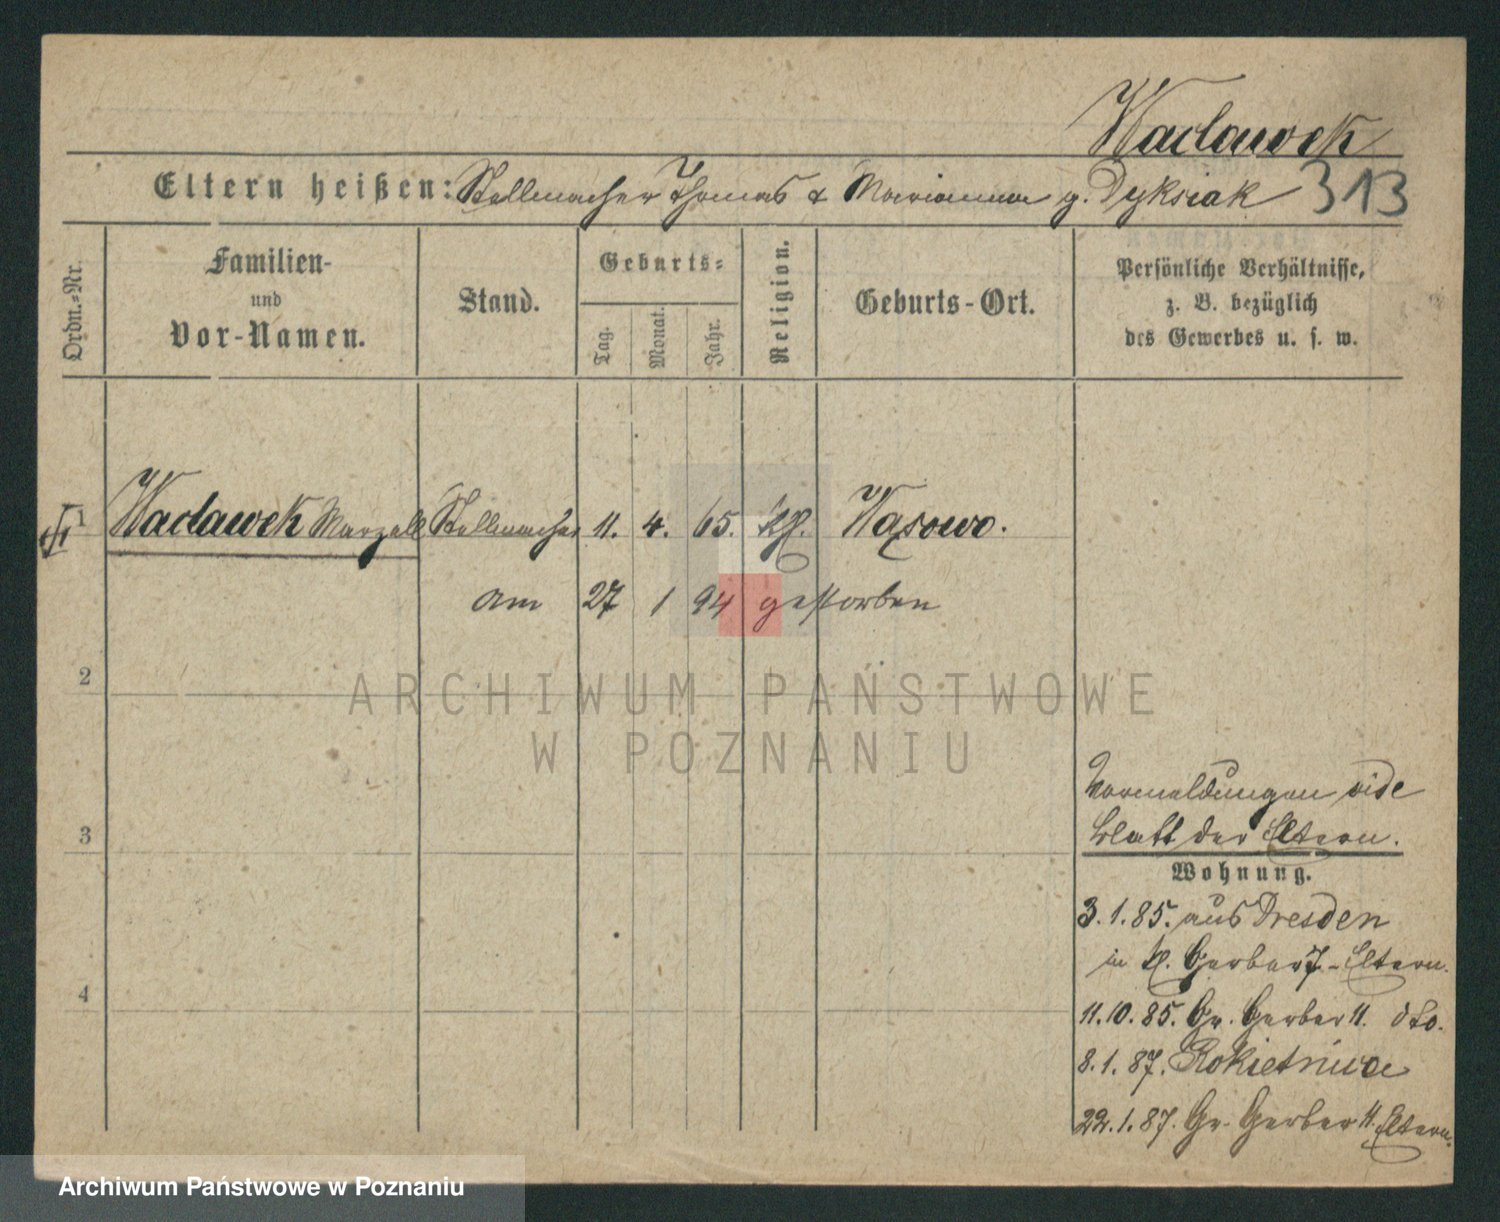 Waclawek
Eltern heißen: Stellmacher Thomas & Marianna g. Dyksiak 313
Ordn.=Nr.
Familien-
und
Vor-Namen.
Stand.
Geburts=
Tag.
Monat.
Jahr.
Religion.
Geburts-Ort.
Persönliche Verhältnisse,
z. B. bezüglich
des Gewerbes u. s. w.
1 Waclawek Marzell Stellmacher 11. 4. 65. kth. Wąsowo.
am 27 1 94 gestorben
2
3
4
ARCHIWUM PAŃSTWOWE
W POZNANIU
Vormeldungen vide
Blatt der Eltern.
Wohnung.
3.1.85. aus Dresden
in Kl. Gerber 7 - Eltern.
11.10.85. Gr. Gerber 11. dto.
8.1.87. Rokietnice
22.1.87. Gr. Gerber 11. Eltern.
Archiwum Państwowe w Poznaniu